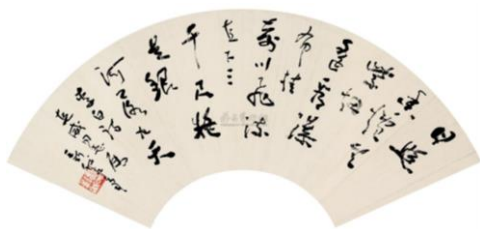 日照
香爐生
紫烟
遥看瀑
布挂
前川飛流
直下三
千尺疑
是銀
河落九天
李白詩